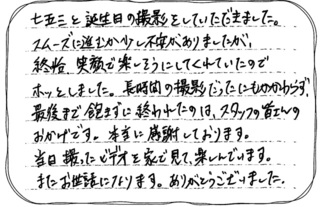 七五三と誕生日の撮影をしていただきました。
スムーズに進むか少し不安がありましたが、
終始、笑顔で楽しそうにしてくれていたので
ホッとしました。長時間の撮影だったにもかかわらず、
最後まで飽きずに終われたのは、スタッフの皆さんの
おかげです。本当に感謝しております。
当日撮ったビデオを家で見て、楽しんでいます。
またお世話になります。ありがとうございました。